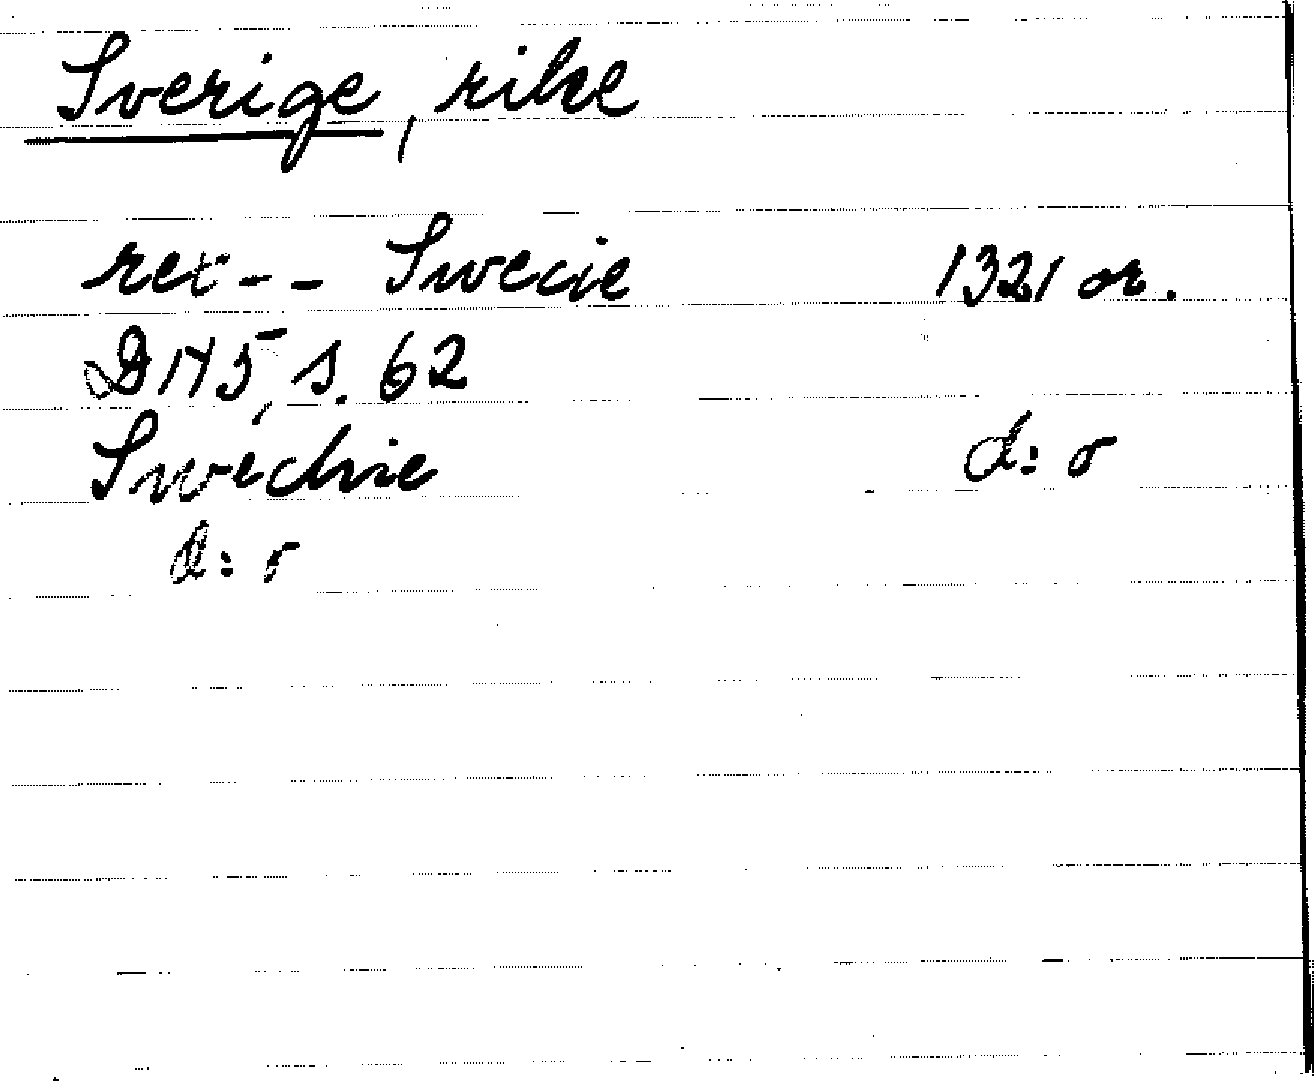 Sverige, rike
rex - - Swecie 1321 or.
DN 5, s. 62
Swechie d:o
d:o